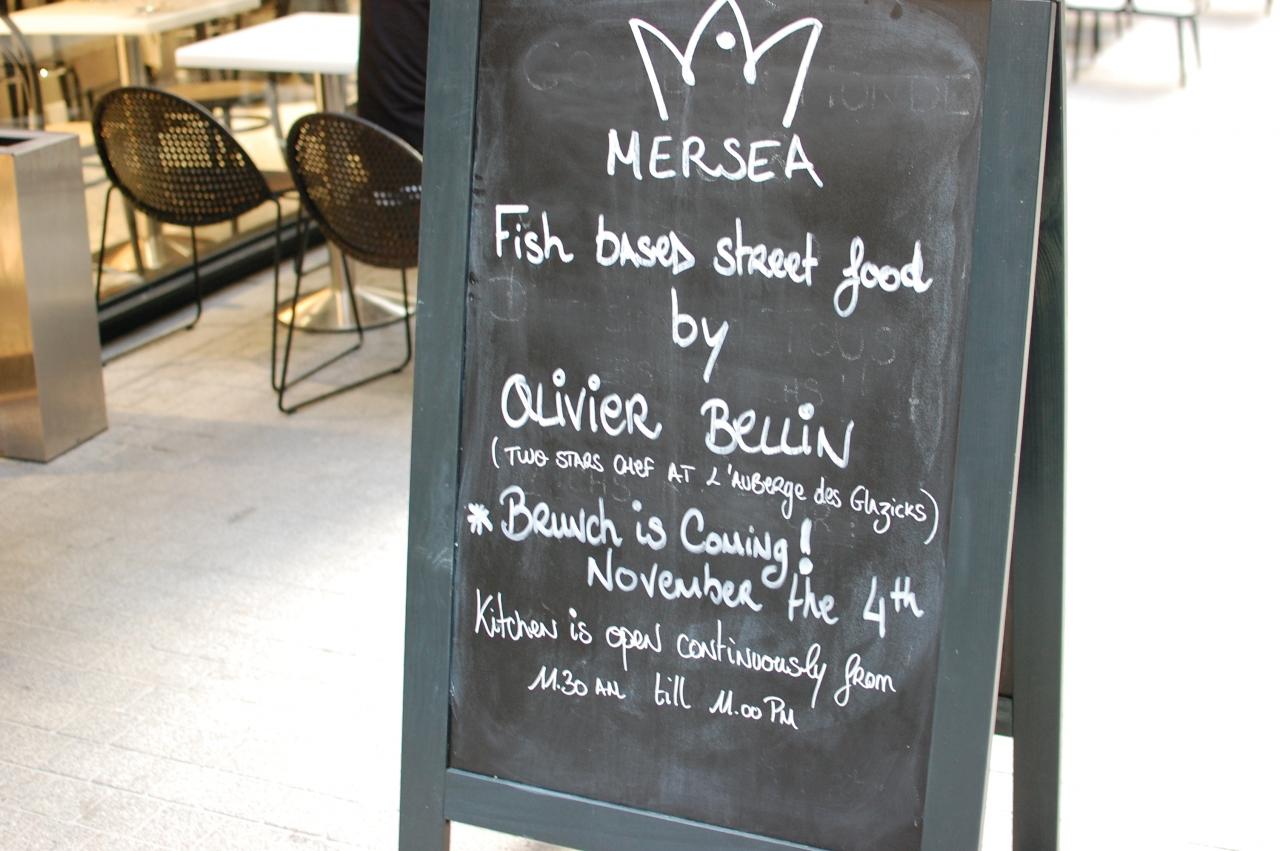 MERSEA
Fish based street food
by
OLIVIER BELLIN
(TWO STARS CHEF AT L'AUBERGE des Glazicks)
* Brunch is Coming!
November the 4th
Kitchen is open continuously from
11.30 AM till 11.00 PM